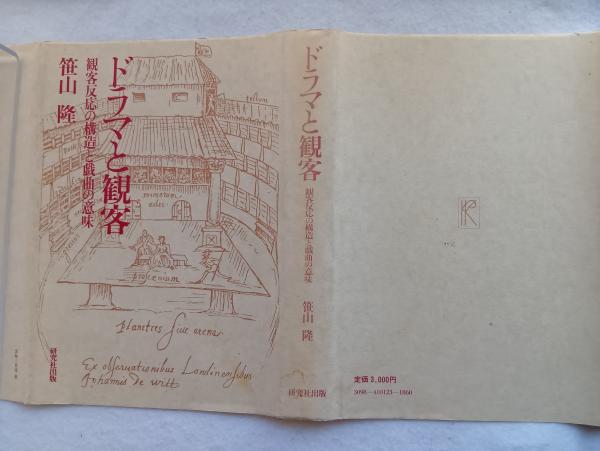 ドラマと観客
観客反応の構造と戯曲の意味
笹山 隆
tectum
mimorum
ædes
proscænium
Planities siue arena
Ex observationibus Londinensibus
Johannis de witt
研究社出版
ドラマと観客
観客反応の構造と戯曲の意味
笹山 隆
研究社出版
定価 3,000円
3098—410123—1860